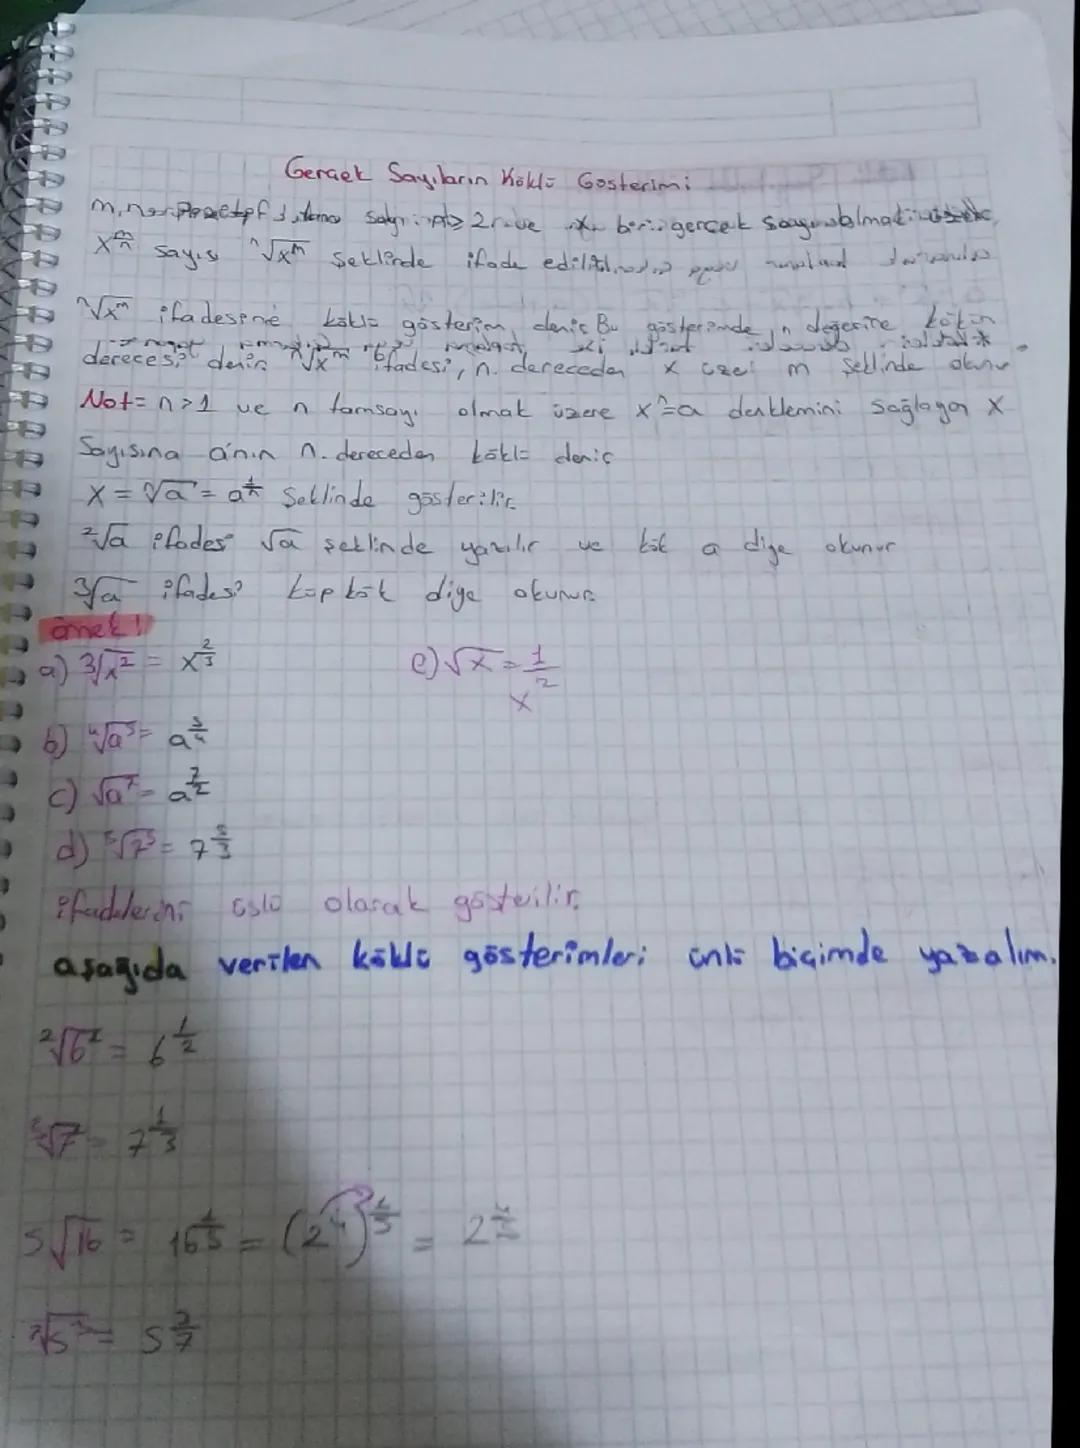 Gerçek Sayıların Köklü Gösterimi
m,n pozitif tamsayı n≥2 ve x bir gerçek sayı olmak üzere
x^(m/n) sayısı ⁿ√x^m şeklinde ifade edilir
ⁿ√x^m ifadesine köklü gösterim denir Bu gösterimde n değerine kökün
derecesi denir ⁿ√x^m ifadesi, n. dereceden x üzeri m şeklinde okunur
Not= n>1 ve n tamsayı olmak üzere xⁿ=a denklemini sağlayan x
Sayısına a'nın n. dereceden kökü denir
x = ⁿ√a = a^(1/n) şeklinde gösterilir.
²√a ifadesi √a şeklinde yazılır ve kök a diye okunur
³√a ifadesi küp kök diye okunur.
örnek 1
a) ³√x² = x^(2/3) e) √x = x^(1/2)
b) ⁴√a⁵ = a^(5/4)
c) √a⁷ = a^(7/2)
d) ⁵√7⁵ = 7^(5/3)
ifadelerini üslü olarak gösterilir.
aşağıda verilen köklü gösterimleri ünlü biçimde yazalım.
²√6¹ = 6^(1/2)
√7 = 7^(1/3)
5√16 = 16^(1/5) = (2⁴)^(1/5) = 2^(4/5)
⁷√5³ = 5^(3/7)